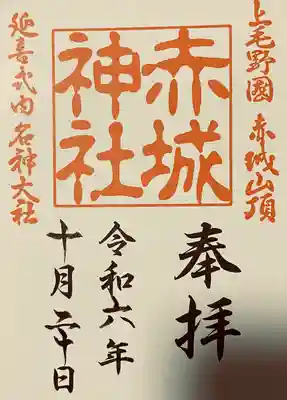 上毛野國 赤城山頂
赤城
神社
延喜式内名神大社
奉拝
令和六年
十月二十日